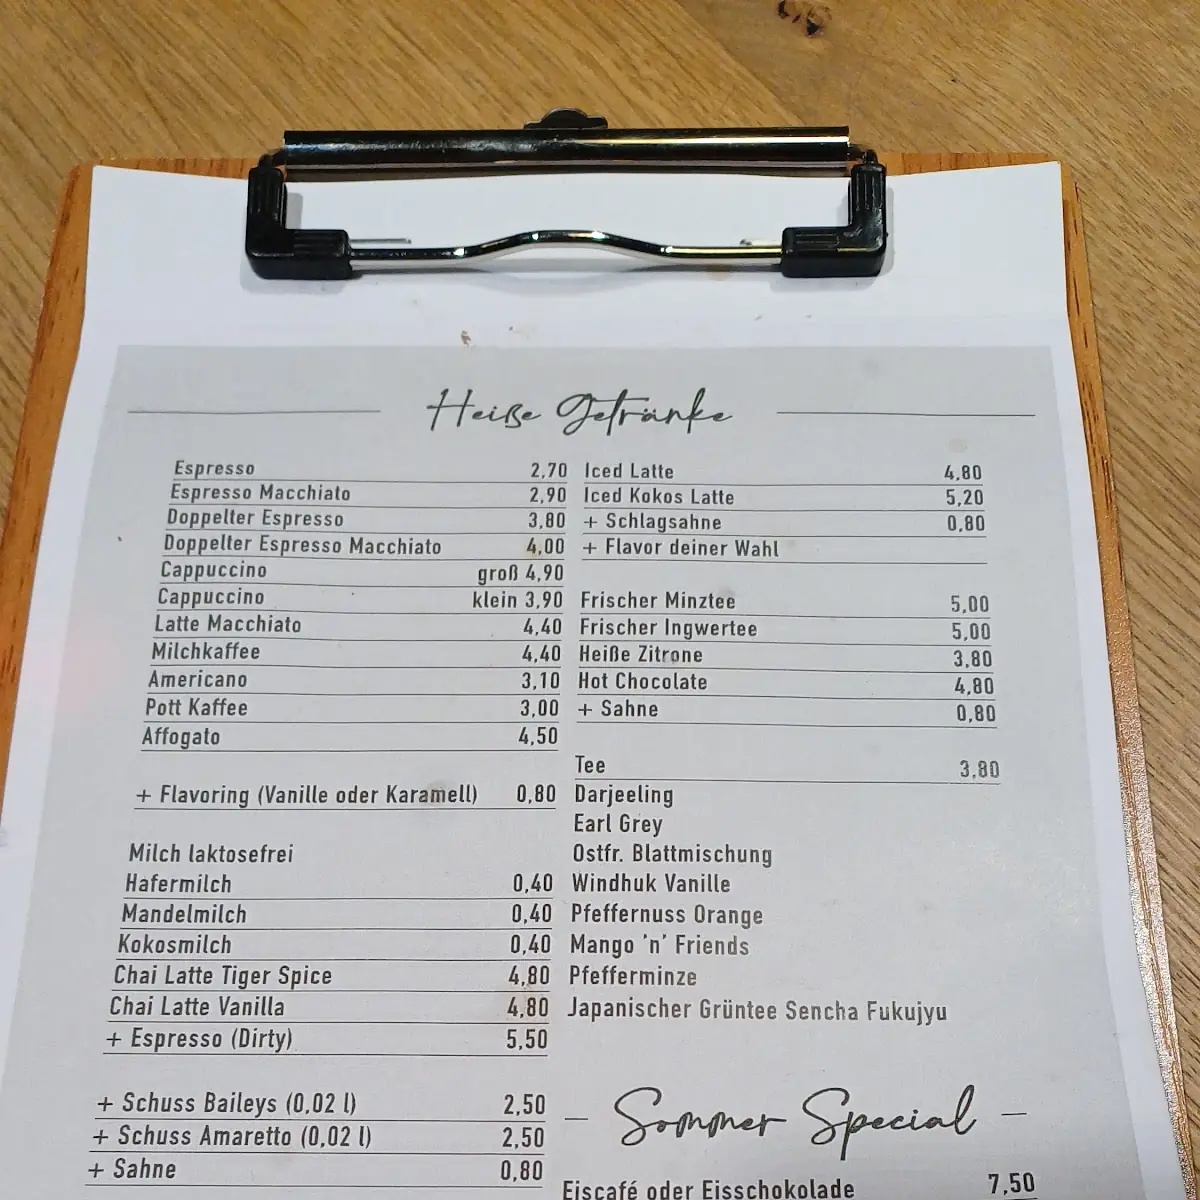 Heiße Getränke
Espresso 2,70
Espresso Macchiato 2,90
Doppelter Espresso 3,80
Doppelter Espresso Macchiato 4,00
Cappuccino groß 4,90
Cappuccino klein 3,90
Latte Macchiato 4,40
Milchkaffee 4,40
Americano 3,10
Pott Kaffee 3,00
Affogato 4,50
+ Flavoring (Vanille oder Karamell) 0,80
Milch laktosefrei
Hafermilch 0,40
Mandelmilch 0,40
Kokosmilch 0,40
Chai Latte Tiger Spice 4,80
Chai Latte Vanilla 4,80
+ Espresso (Dirty) 5,50
+ Schuss Baileys (0,02 l) 2,50
+ Schuss Amaretto (0,02 l) 2,50
+ Sahne 0,80
Iced Latte 4,80
Iced Kokos Latte 5,20
+ Schlagsahne 0,80
+ Flavor deiner Wahl
Frischer Minztee 5,00
Frischer Ingwertee 5,00
Heiße Zitrone 3,80
Hot Chocolate 4,80
+ Sahne 0,80
Tee 3,80
Darjeeling
Earl Grey
Ostfr. Blattmischung
Windhuk Vanille
Pfeffernuss Orange
Mango 'n' Friends
Pfefferminze
Japanischer Grüntee Sencha Fukujyu
Sommer Special
Eiscafé oder Eisschokolade 7,50